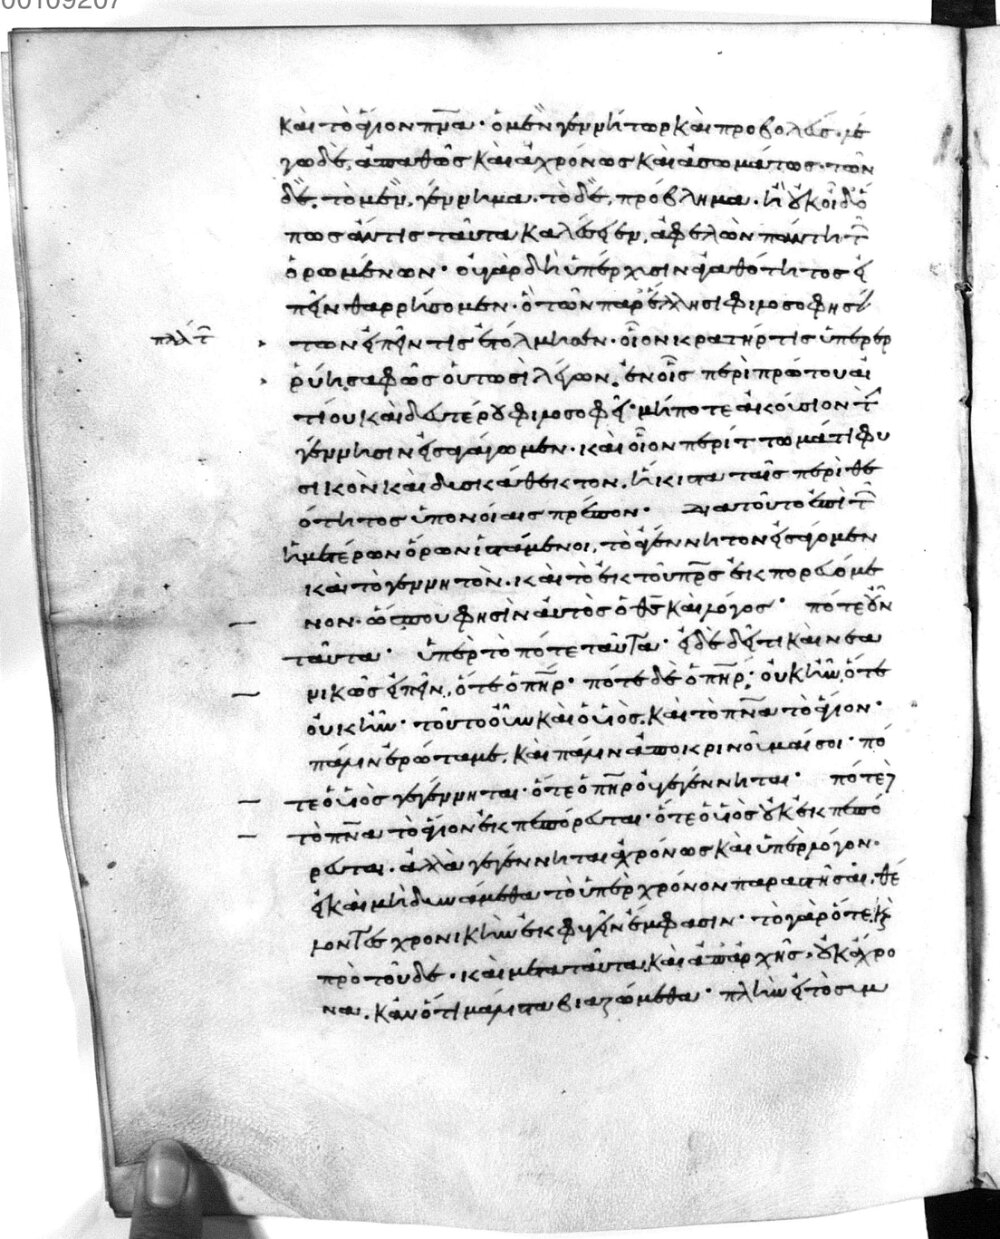 00109207
καὶ τὸ ἅγιον πνα· ὁ μὲν γεννήτωρ καὶ προβολεύς· λέ
γω δὲ, ἀπαθῶς καὶ ἀχρόνως καὶ ἀσωμάτως· τῶν
δὲ, τὸ μὲν, γέννημα· τὸ δὲ, πρόβλημα· ἢ οὐκ οἶδ' ὅ
πως ἄν τις ταῦτα καλέσειεν, ἀφελὼν πάντη τῶν
ὁρωμένων· οὐ γὰρ δὴ ὑπέρχυσιν ἀγαθότητος εἰ
πεῖν θαρρήσομεν· ὃ τῶν παρ' ἕλλησι φιλοσοφησάν
πλάτ
των εἰπεῖν τις ἐτόλμησεν· οἷον κρατήρ τις ὑπερερ
ρύη σαφῶς οὑτωσὶ λέγων, ἐν οἷς περὶ πρώτου αἰ
τίου καὶ δευτέρου φιλοσοφεῖ· μήποτε ἀκούσιον τὴν
γέννησιν εἰσαγάγωμεν· καὶ οἷον περίττωμά τι φυ
σικὸν καὶ δυσκάθεκτον, ἥκιστα ταῖς περὶ θε
ότητος ὑπονοίαις πρέπον· διατοῦτο ἐπὶ τῶν
ἡμετέρων ὅρων ἱστάμενοι, τὸ ἀγέννητον εἰσάγομεν
καὶ τὸ γεννητὸν· καὶ τὸ ἐκ τοῦ πρς ἐκπορευόμε
νον· ὥς που φησὶν αὐτὸς ὁ θς καὶ λόγος· πότε οὖν
ταῦτα· ὑπὲρ τὸ πότε ταῦτα· εἰ δὲ δεῖ τι καὶ νεα
νικῶς εἰπεῖν, ὅτε ὁ πηρ· πότε δὲ ὁ πηρ; οὐκ ἦν, ὅτε
οὐκ ἦν· τοῦτο οὖν καὶ ὁ υἱὸς, καὶ τὸ πνα τὸ ἅγιον·
πάλιν ἐρώτα με, καὶ πάλιν ἀποκρινοῦμαί σοι· πό
τε ὁ υἱὸς γεγέννηται· ὅτε ὁ πηρ οὐ γεγέννηται· πότε δὲ
τὸ πνα τὸ ἅγιον ἐκπεπόρευται· ὅτε ὁ υἱὸς οὐκ ἐκπεπό
ρευται· ἀλλὰ γεγέννηται ἀχρόνως καὶ ὑπὲρ λόγον·
εἰ καὶ μὴ δυνάμεθα τὸ ὑπὲρ χρόνον παραστῆσαι, θέ
λοντες χρονικὴν ἐκφυγεῖν ἔμφασιν· τὸ γὰρ ὅτε, καὶ
πρὸ τοῦδε· καὶ μετὰ ταῦτα, καὶ ἀπ' ἀρχῆς, οὐκ ἄχρο
να, κἂν ὅτι μάλιστα βιαζώμεθα· πλὴν εἰ τὸ συμ